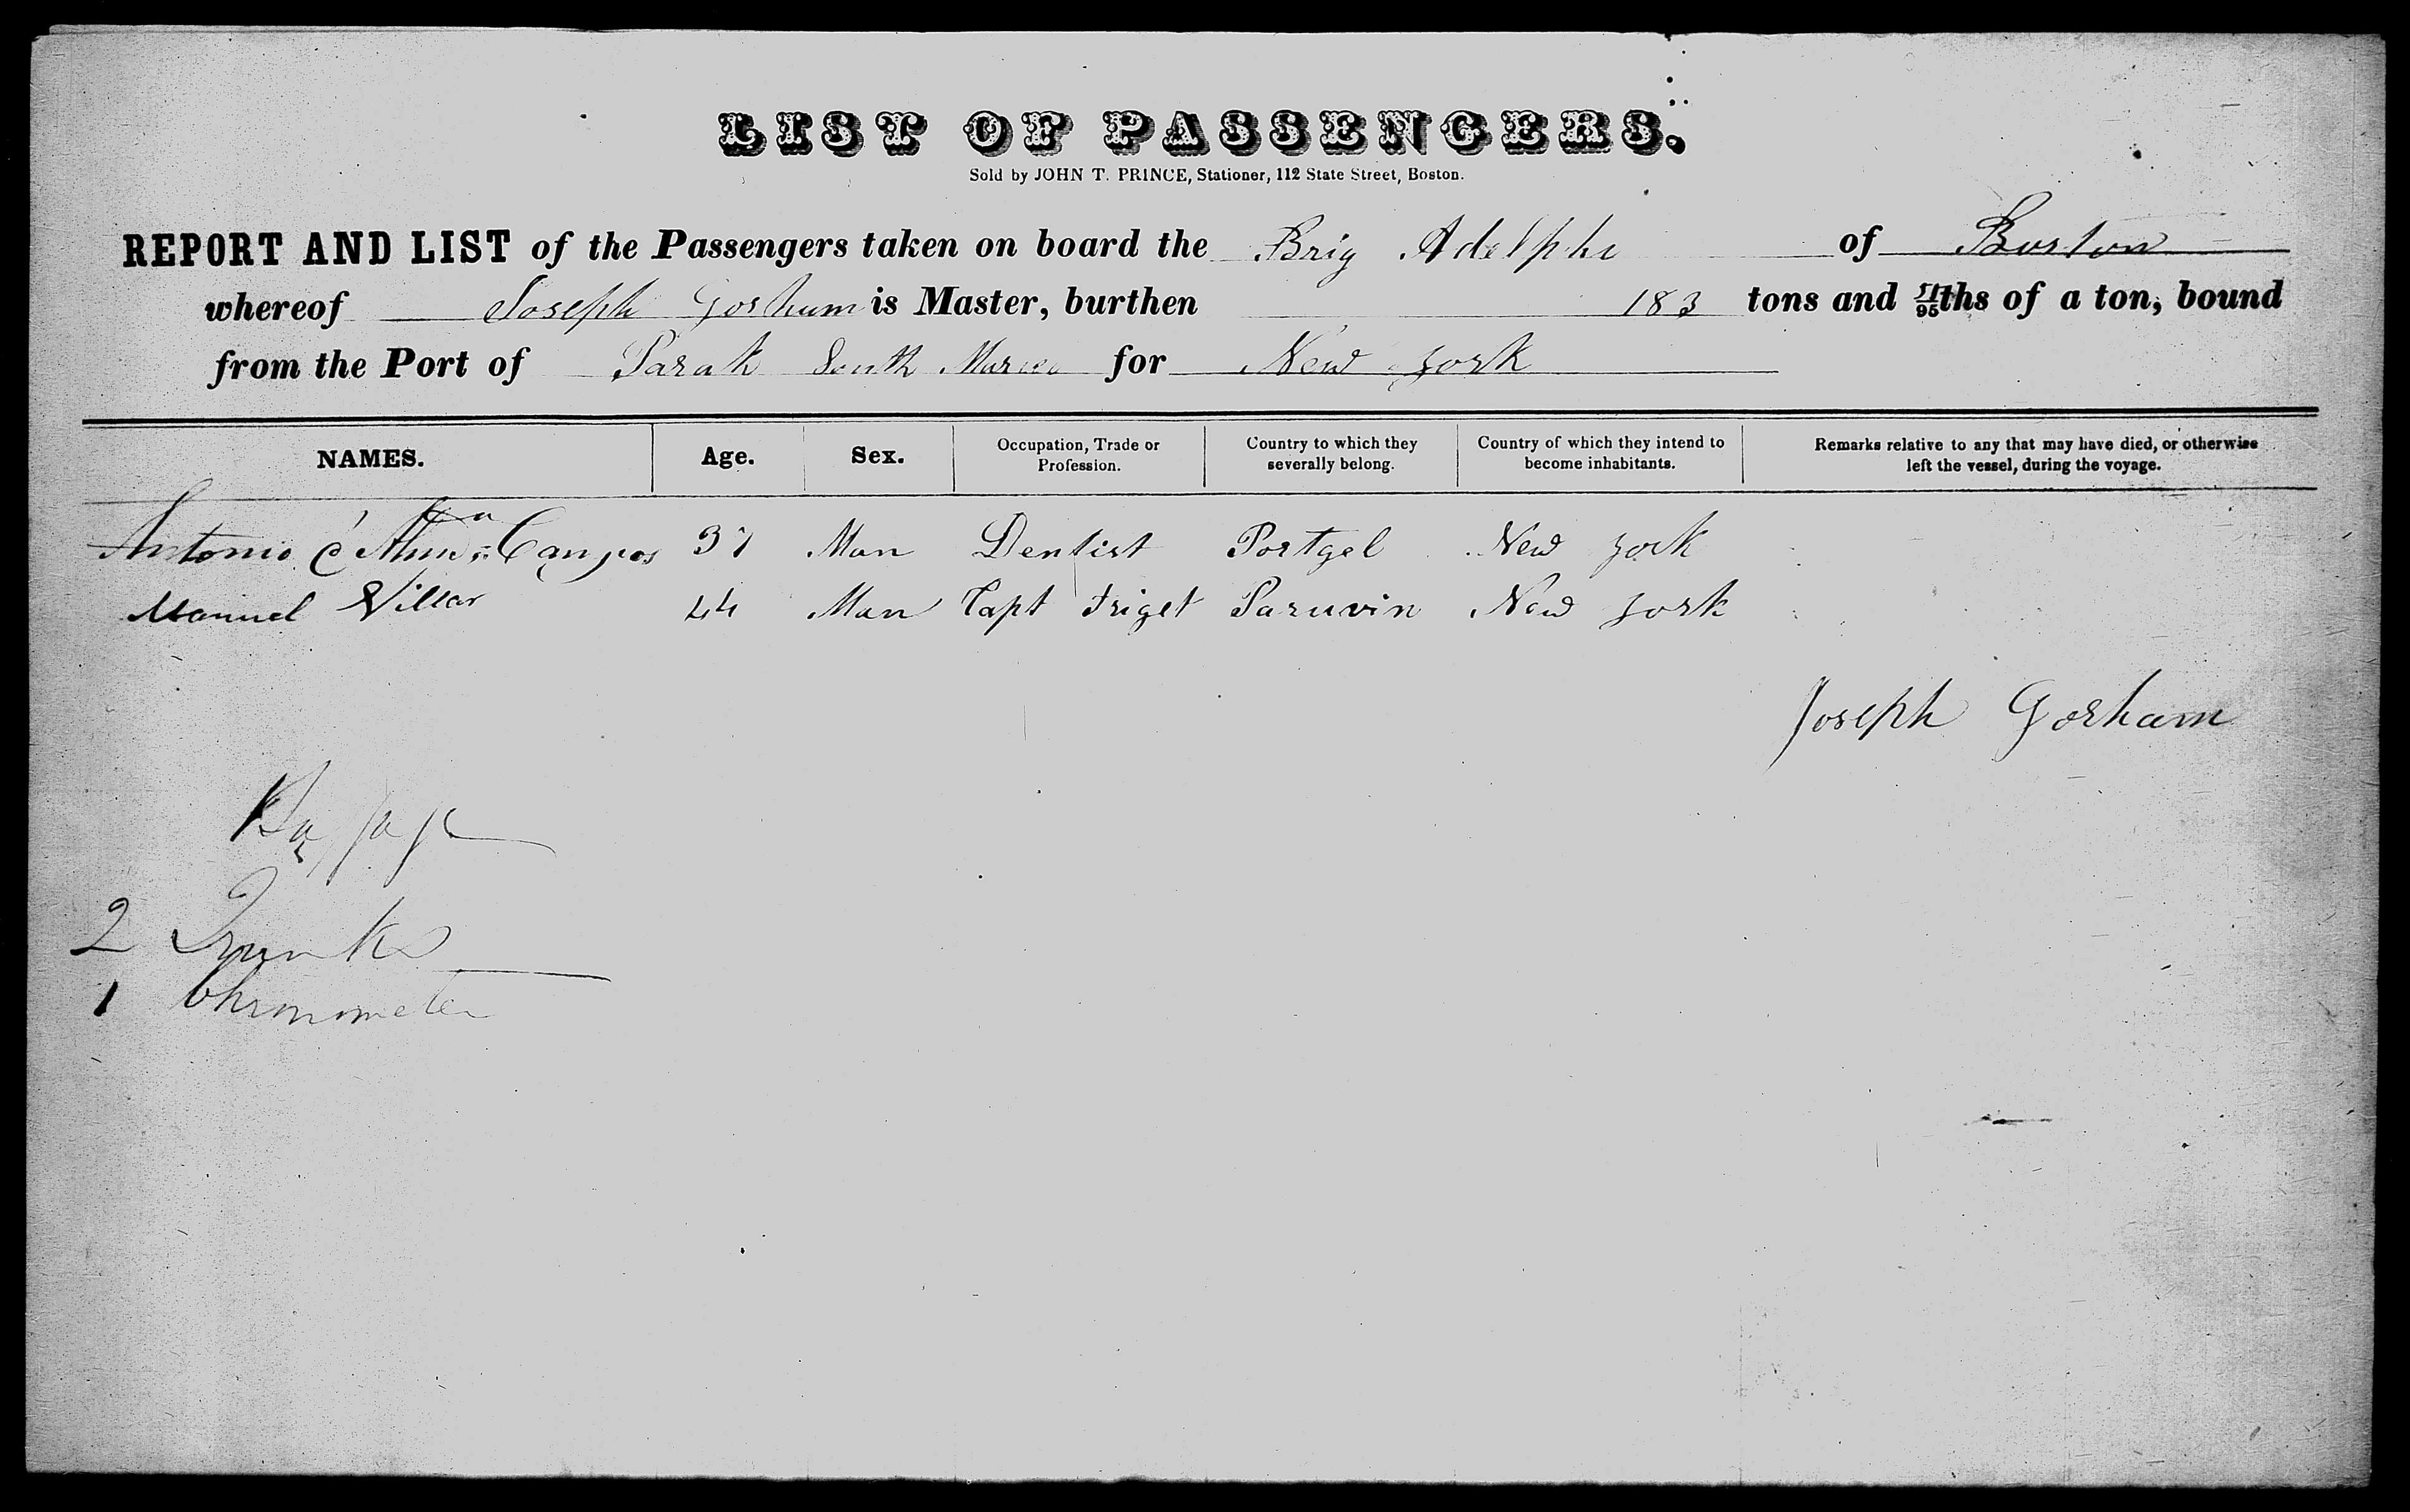 LIST OF PASSENGERS.
Sold by JOHN T. PRINCE, Stationer, 112 State Street, Boston.
REPORT AND LIST of the Passengers taken on board the Brig Adelphi of Boston
whereof Joseph Gorham is Master, burthen 183 tons and 51/95ths of a ton, bound
from the Port of Parah South for New york
NAMES. Age. Sex. Occupation, Trade or Profession. Country to which they severally belong. Country of which they intend to become inhabitants. Remarks relative to any that may have died, or otherwise left the vessel, during the voyage.
Antonio Campos 37 Man Dentist Portgel New york
Manuel Villar 44 Man Capt Friget Paruvin New york
Joseph Gorham
Baggage
2 Trunks
1 Chronometer